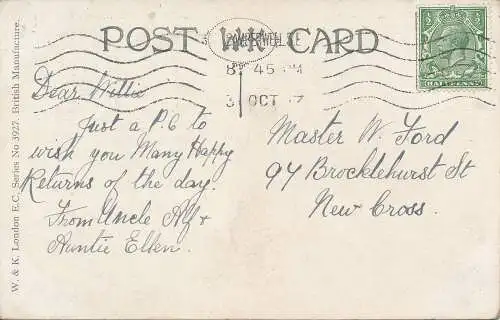 POST W&K CARD
CAMBERWELL S.E
8 45 PM
3 OCT 17
HALFPENNY
Dear Willie
Just a P.C to
wish you Many Happy
Returns of the day.
From Uncle Alf &
Auntie Ellen.
Master W. Ford
97 Brocklehurst St
New Cross.
W. & K. London E.C. Series No 3927. British Manufacture.